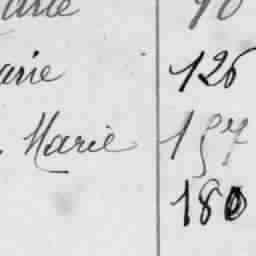 arie 90
arie 126
. Marie 157
180